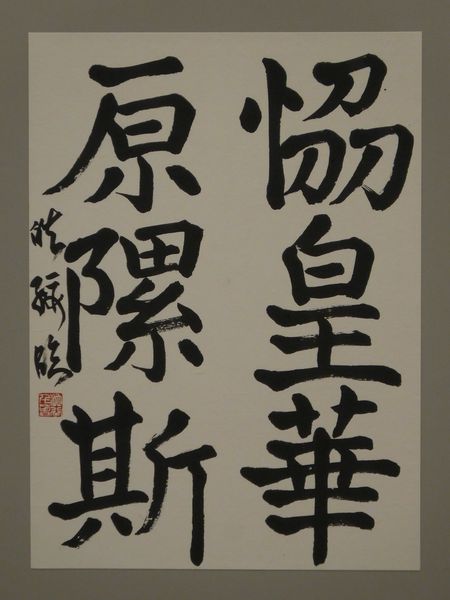 恊皇華
原隰斯
臨